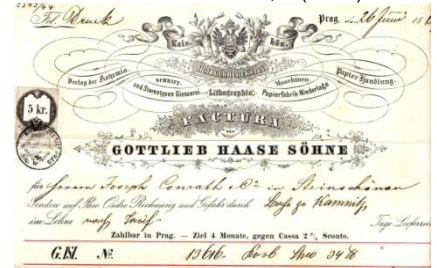 Prag, 26 Juni 18
Kais. kön.
Verlag der Bohemia.
SCHRIFT-
und Stereotypen Giesserei
Lithographie.
Maschinen-
Papierfabrik-Niederlage
Papier Handlung.
5 kr.
FACTURA
VON
GOTTLIEB HAASE SÖHNE
für Herrn Joseph Conrath & Co in Steinschönau
Senden auf Ihre Ordre Rechnung und Gefahr durch
im Lohne nach Tarif
Tage Lieferzeit
Zahlbar in Prag. — Ziel 4 Monate, gegen Cassa 2% Sconto.
G.H. No. 13616.